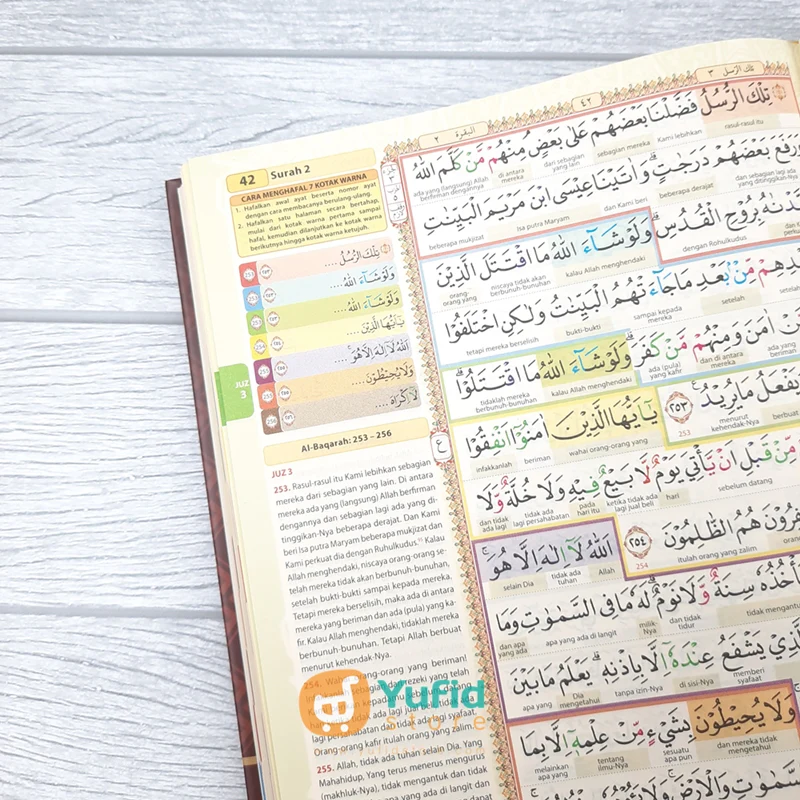 42 Surah 2
CARA MENGHAFAL 7 KOTAK WARNA
1. Hafalkan awal ayat beserta nomor ayat
dengan cara membacanya berulang-ulang.
2. Hafalkan satu halaman secara bertahap,
mulai dari kotak warna pertama sampai
hafal, kemudian dilanjutkan ke kotak warna
berikutnya hingga kotak warna ketujuh.
تِلْكَ الرُّسُلُ ....
وَلَوْ شَاۤءَ اللّٰهُ ....
وَلَوْ شَاۤءَ اللّٰهُ ....
يٰٓاَيُّهَا الَّذِيْنَ ....
اَللّٰهُ لَآ اِلٰهَ اِلَّا هُوَ ....
وَلَا يُحِيْطُوْنَ ....
لَآ اِكْرَاهَ ....
JUZ
3
Al-Baqarah: 253 – 256
JUZ 3
253. Rasul-rasul itu Kami lebihkan sebagian
mereka dari sebagian yang lain. Di antara
mereka ada yang (langsung) Allah berfirman
dengannya dan sebagian lagi ada yang di-
tinggikan-Nya beberapa derajat. Dan Kami
beri Isa putra Maryam beberapa mukjizat dan
Kami perkuat dia dengan Ruhulkudus. Kalau
Allah menghendaki, niscaya orang-orang se-
telah mereka tidak akan berbunuh-bunuhan,
setelah bukti-bukti sampai kepada mereka.
Tetapi mereka berselisih, maka ada di antara
mereka yang beriman dan ada (pula) yang ka-
fir. Kalau Allah menghendaki, tidaklah mereka
berbunuh-bunuhan. Tetapi Allah berbuat
menurut kehendak-Nya.
254. orang-orang yang beriman!
sebagian dari rezeki yang telah
lagi persahabatan dan tidak ada lagi syafaat.
Orang-orang kafir itulah orang yang zalim.
255. Allah, tidak ada tuhan selain Dia. Yang
Mahahidup, Yang terus menerus mengurus
(makhluk-Nya), tidak mengantuk dan tidak
ada di langit dan
البقرة ٢
٤٢
تلك الرسل ٣
تِلْكَ الرُّسُلُ فَضَّلْنَا بَعْضَهُمْ عَلٰى بَعْضٍ مِنْهُمْ مَّنْ كَلَّمَ اللّٰهُ
rasul-rasul itu Kami lebihkan sebagian mereka dari sebagian yang lain di antara mereka ada yang (langsung) Allah berfirman dengannya
وَرَفَعَ بَعْضَهُمْ دَرَجٰتٍ وَاٰتَيْنَا عِيْسَى ابْنَ مَرْيَمَ الْبَيِّنٰتِ
dan sebagian lagi ada yang ditinggikan-Nya beberapa derajat dan Kami beri Isa putra Maryam beberapa mukjizat
بِرُوْحِ الْقُدُسِ وَلَوْ شَاۤءَ اللّٰهُ مَا اقْتَتَلَ الَّذِيْنَ
dengan Rohulkudus kalau Allah menghendaki niscaya tidak akan berbunuh-bunuhan orang-orang yang
مِّنْۢ بَعْدِ مَا جَاۤءَتْهُمُ الْبَيِّنٰتُ وَلٰكِنِ اخْتَلَفُوْا
setelah sampai kepada mereka bukti-bukti tetapi mereka berselisih
اٰمَنَ وَمِنْهُمْ مَّنْ كَفَرَ وَلَوْ شَاۤءَ اللّٰهُ مَا اقْتَتَلُوْا
ada yang beriman dan di antara mereka ada (pula) yang kafir kalau Allah menghendaki tidaklah mereka berbunuh-bunuhan
يَفْعَلُ مَا يُرِيْدُ ٢٥٣ يٰٓاَيُّهَا الَّذِيْنَ اٰمَنُوْٓا اَنْفِقُوْا
berbuat menurut kehendak-Nya 253 wahai orang-orang yang beriman infakkanlah
مِّنْ قَبْلِ اَنْ يَّأْتِيَ يَوْمٌ لَّا بَيْعٌ فِيْهِ وَلَا خُلَّةٌ وَّلَا
sebelum datang hari ketika tidak ada lagi jual beli pada hari itu lagi persahabatan dan tidak ada lagi
هُمُ الظّٰلِمُوْنَ ٢٥٤ اَللّٰهُ لَآ اِلٰهَ اِلَّا هُوَ
itulah orang yang zalim 254 Allah tidak ada tuhan selain Dia
سِنَةٌ وَّلَا نَوْمٌ لَهٗ مَا فِى السَّمٰوٰتِ وَمَا
tidak mengantuk dan tidak tidur milik-Nya apa yang ada di langit dan apa yang ada
يَشْفَعُ عِنْدَهٗٓ اِلَّا بِاِذْنِهٖ يَعْلَمُ مَا بَيْنَ
memberi syafaat di sisi-Nya tanpa izin-Nya Dia mengetahui apa yang
وَلَا يُحِيْطُوْنَ بِشَيْءٍ مِّنْ عِلْمِهٖٓ اِلَّا بِمَا
dan mereka tidak mengetahui sesuatu apa pun tentang ilmu-Nya melainkan apa yang
Yufid
store